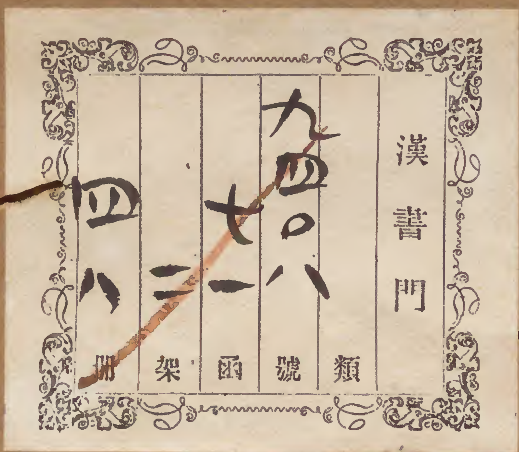 漢書門
類
九四〇八號
七一函
二架
四八冊